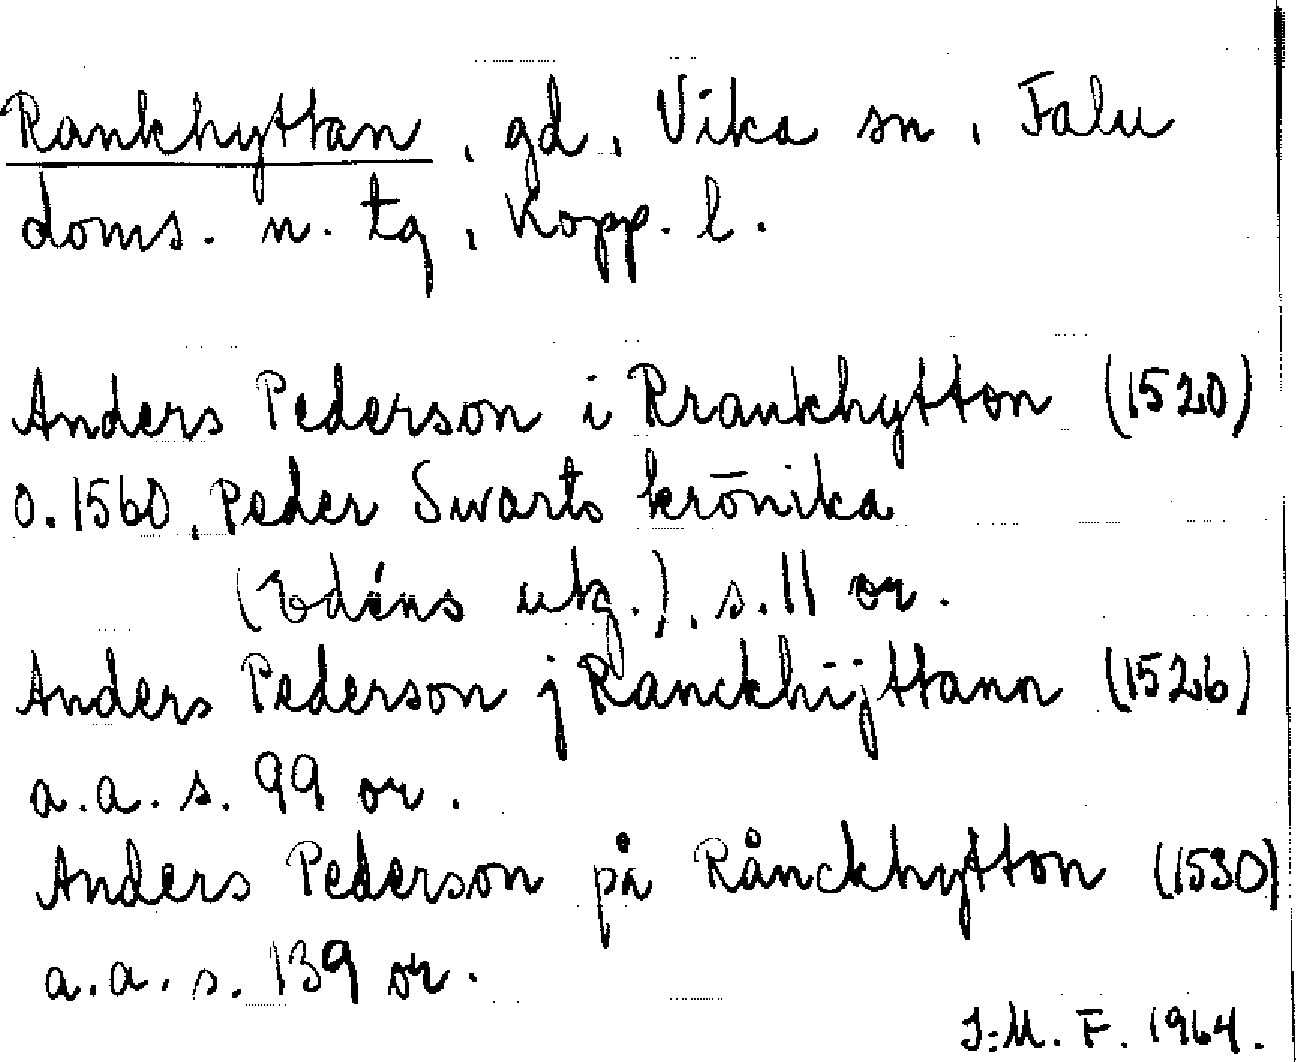 Rankhyttan, gd, Vika sn, Falu
doms. n. tg, Kopp. l.
Anders Pederson i Rrankhytton (1520)
o. 1560, Peder Swarts krönika
(Edéns utg.), s. 11 or.
Anders Pederson j Ranckhijttann (1526)
a.a. s. 99 or.
Anders Pederson på Rånckhytton (1530)
a.a. s. 139 or.
I-M. F. 1964.